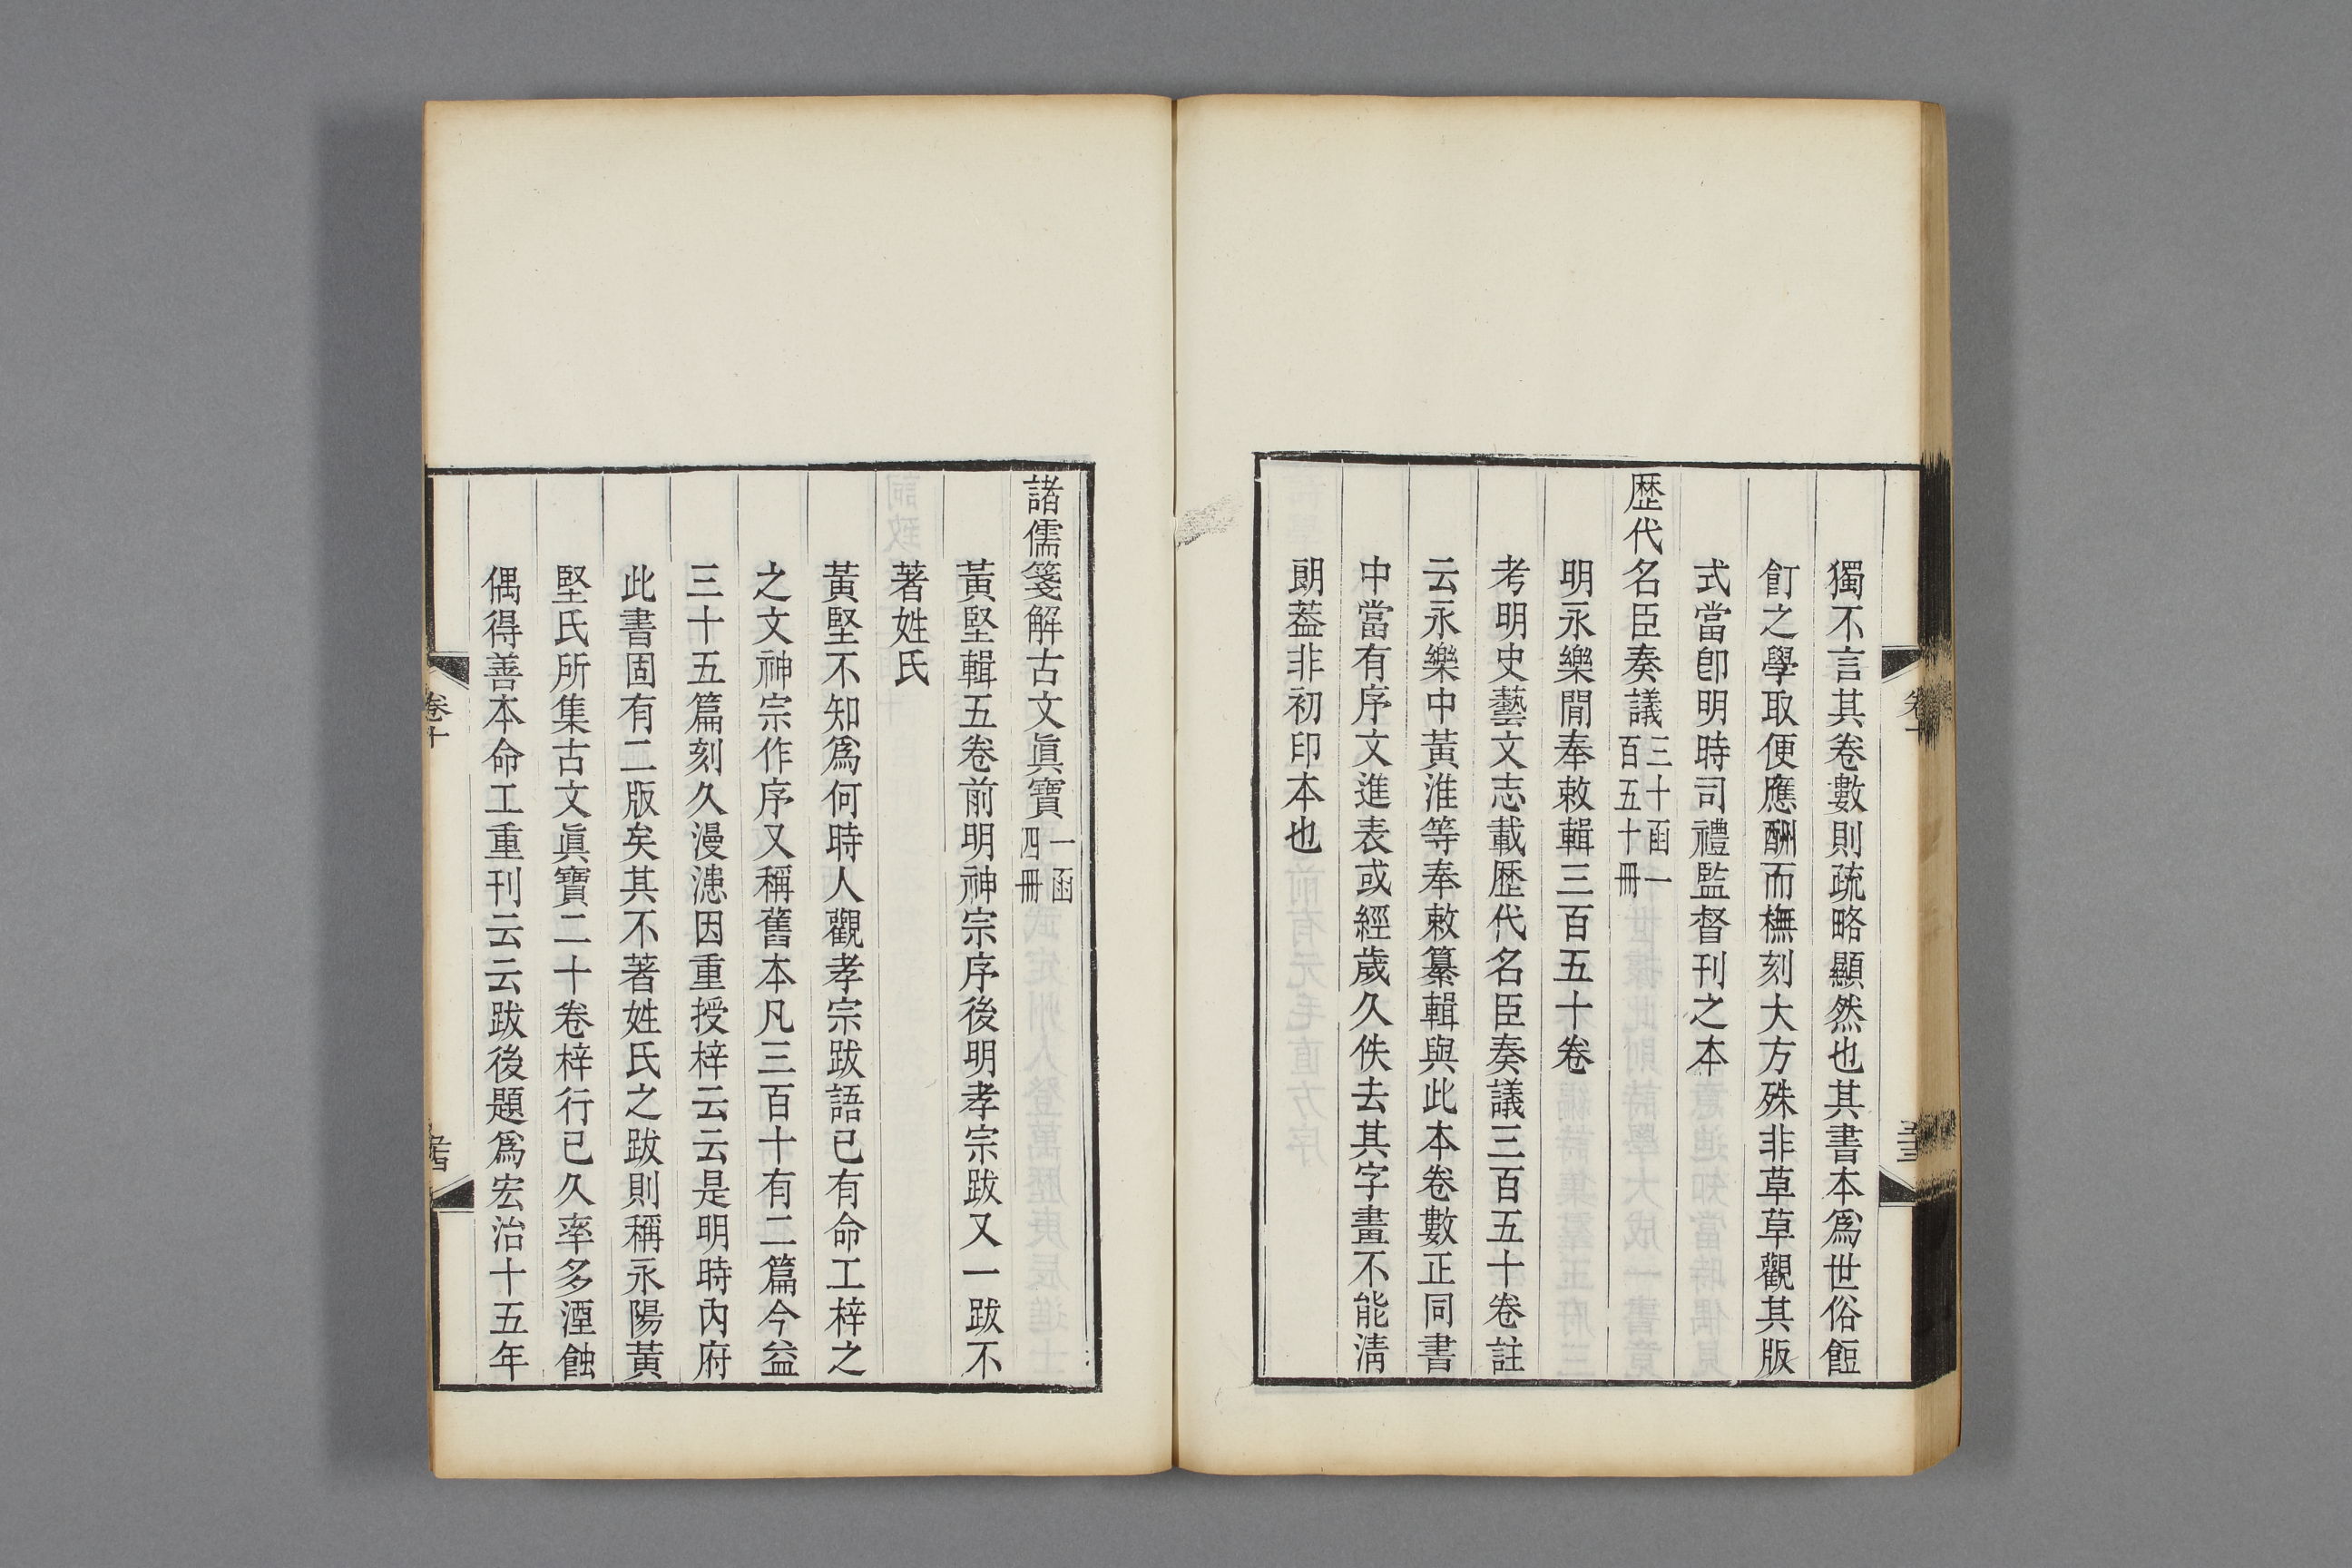 獨不言其卷數則疏略顯然也其書本爲世俗餖
飣之學取便應酬而橅刻大方殊非草草觀其版
式當卽明時司禮監督刊之本
歷代名臣奏議三十函一百五十冊
明永樂閒奉敕輯三百五十卷
考明史藝文志載歷代名臣奏議三百五十卷註
云永樂中黃淮等奉敕纂輯與此本卷數正同書
中當有序文進表或經歲久佚去其字畫不能淸
朗葢非初印本也
卷十
諸儒箋解古文眞寶一函四冊
黃堅輯五卷前明神宗序後明孝宗跋又一跋不
著姓氏
黃堅不知爲何時人觀孝宗跋語已有命工梓之
之文神宗作序又稱舊本凡三百十有二篇今益
三十五篇刻久漫漶因重授梓云云是明時內府
此書固有二版矣其不著姓氏之跋則稱永陽黃
堅氏所集古文眞寶二十卷梓行已久率多湮蝕
偶得善本命工重刊云云跋後題爲宏治十五年
卷十